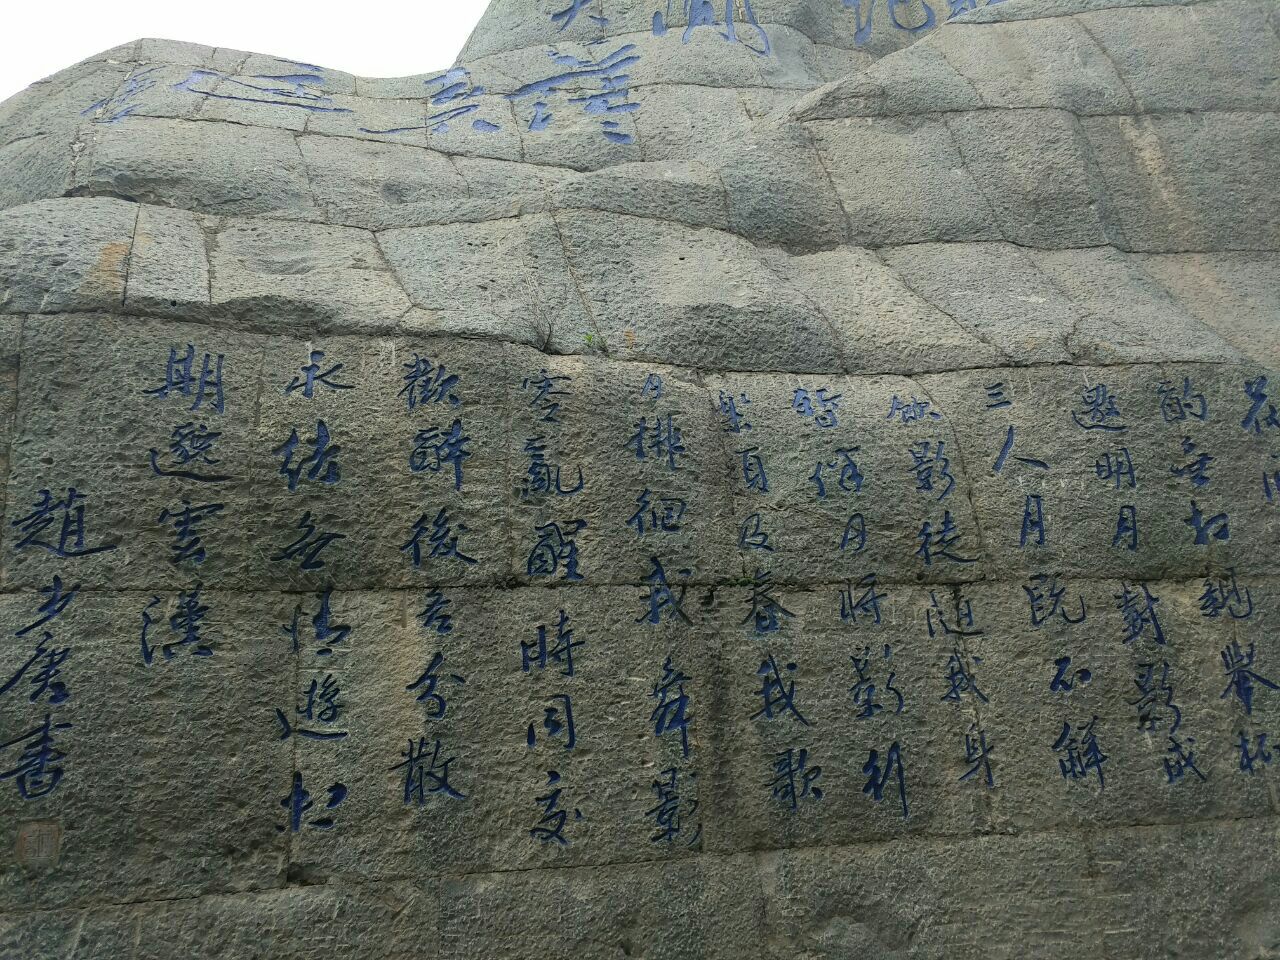 花間
酌無相親舉杯
邀明月對影成
三人月既不解
飲影徒隨我身
暫伴月將影行
樂須及春我歌
月徘徊我舞影
零亂醒時同交
歡醉後各分散
永結無情遊相
期邈雲漢
趙少書